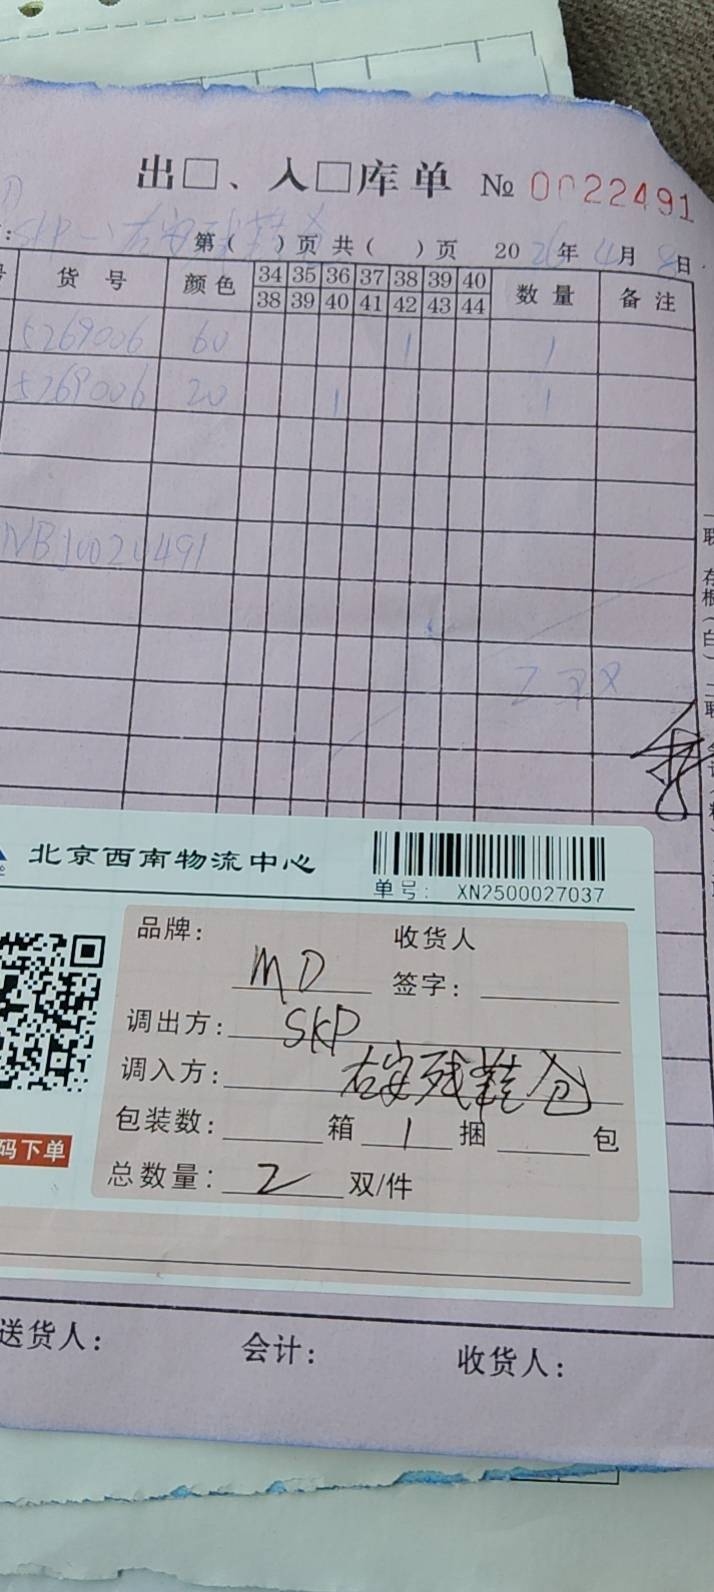 出□、入□库单 № 0022491
SKP—右安残鞋仓
第( )页 共( )页 2026年4月8日
货号 颜色 34 35 36 37 38 39 40 数量 备注
38 39 40 41 42 43 44
5269006 60 1 1
5269006 20 1 1
NB10020491
2双
北京西南物流中心
单号: XN2500027037
品牌: MD 收货人
签字:
调出方: SKP
调入方: 右安残鞋仓
包装数: 箱 1 捆 包
总数量: 2 双/件
码下单
送货人: 会计: 收货人: